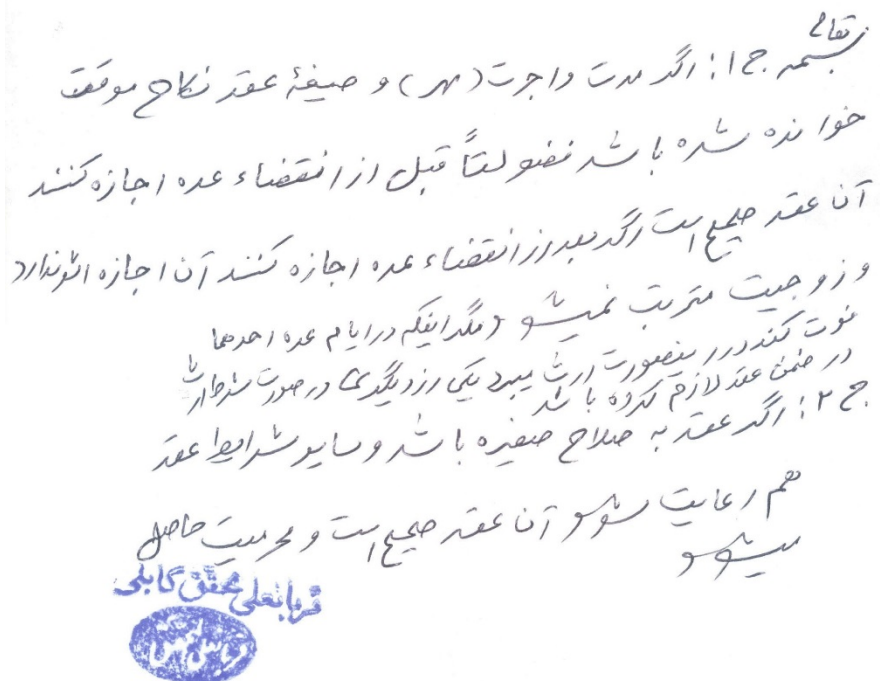 بسمه تعالی
ج ۱: اگر مدت و اجرت (مهر) و صیغهٔ عقد نکاح موقت
خوانده شده باشد فضولتاً قبل از انقضاء عده اجازه کنند
آن عقد صحیح است اگر بعد از انقضاء عده اجازه کنند آن اجازه اثر ندارد
و زوجیت مترتب نمیشود مگر اینکه در ایام عده احدهما
فوت کند در اینصورت ارث میبرد یکی از دیگری در صورت شرط ارث
در ضمن عقد لازم کرده باشد
ج ۲: اگر عقد به صلاح صغیره باشد و سایر شرایط عقد
هم رعایت شود آن عقد صحیح است و محرمیت حاصل
میشود
قربانعلی محقق کابلی